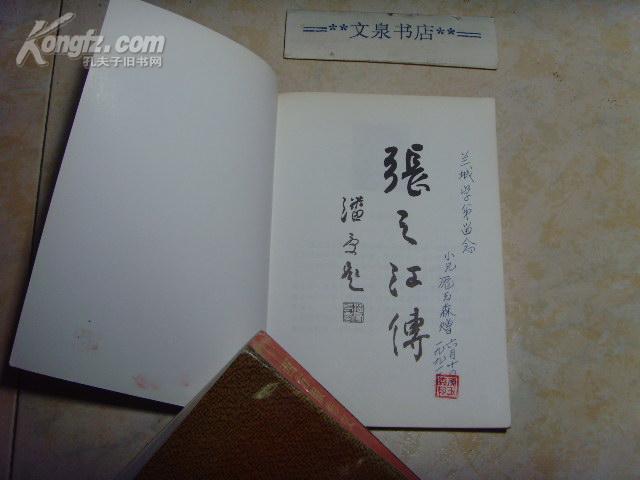 Kongfz.com
孔夫子旧书网
=**文泉书店**=
張之江傳
潘受題
兰城学弟留念
小兄
玉森赠
六月十
一九九一